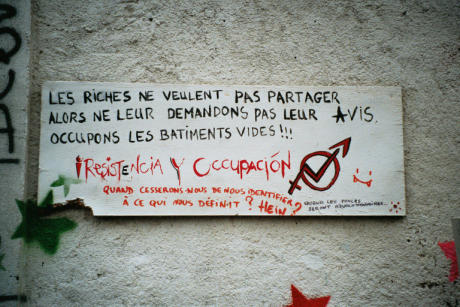 LES RICHES NE VEULENT PAS PARTAGER
ALORS NE LEUR DEMANDONS PAS LEUR AVIS.
OCCUPONS LES BATIMENTS VIDES !!!
¡RESISTENCIA Y OCCUPACIÓN
QUAND CESSERONS-NOUS DE NOUS IDENTIFIER
À CE QUI NOUS DÉFINIT ? HEIN ?
QUAND LES
SERONT RÉVOLUTIONNAIRES...